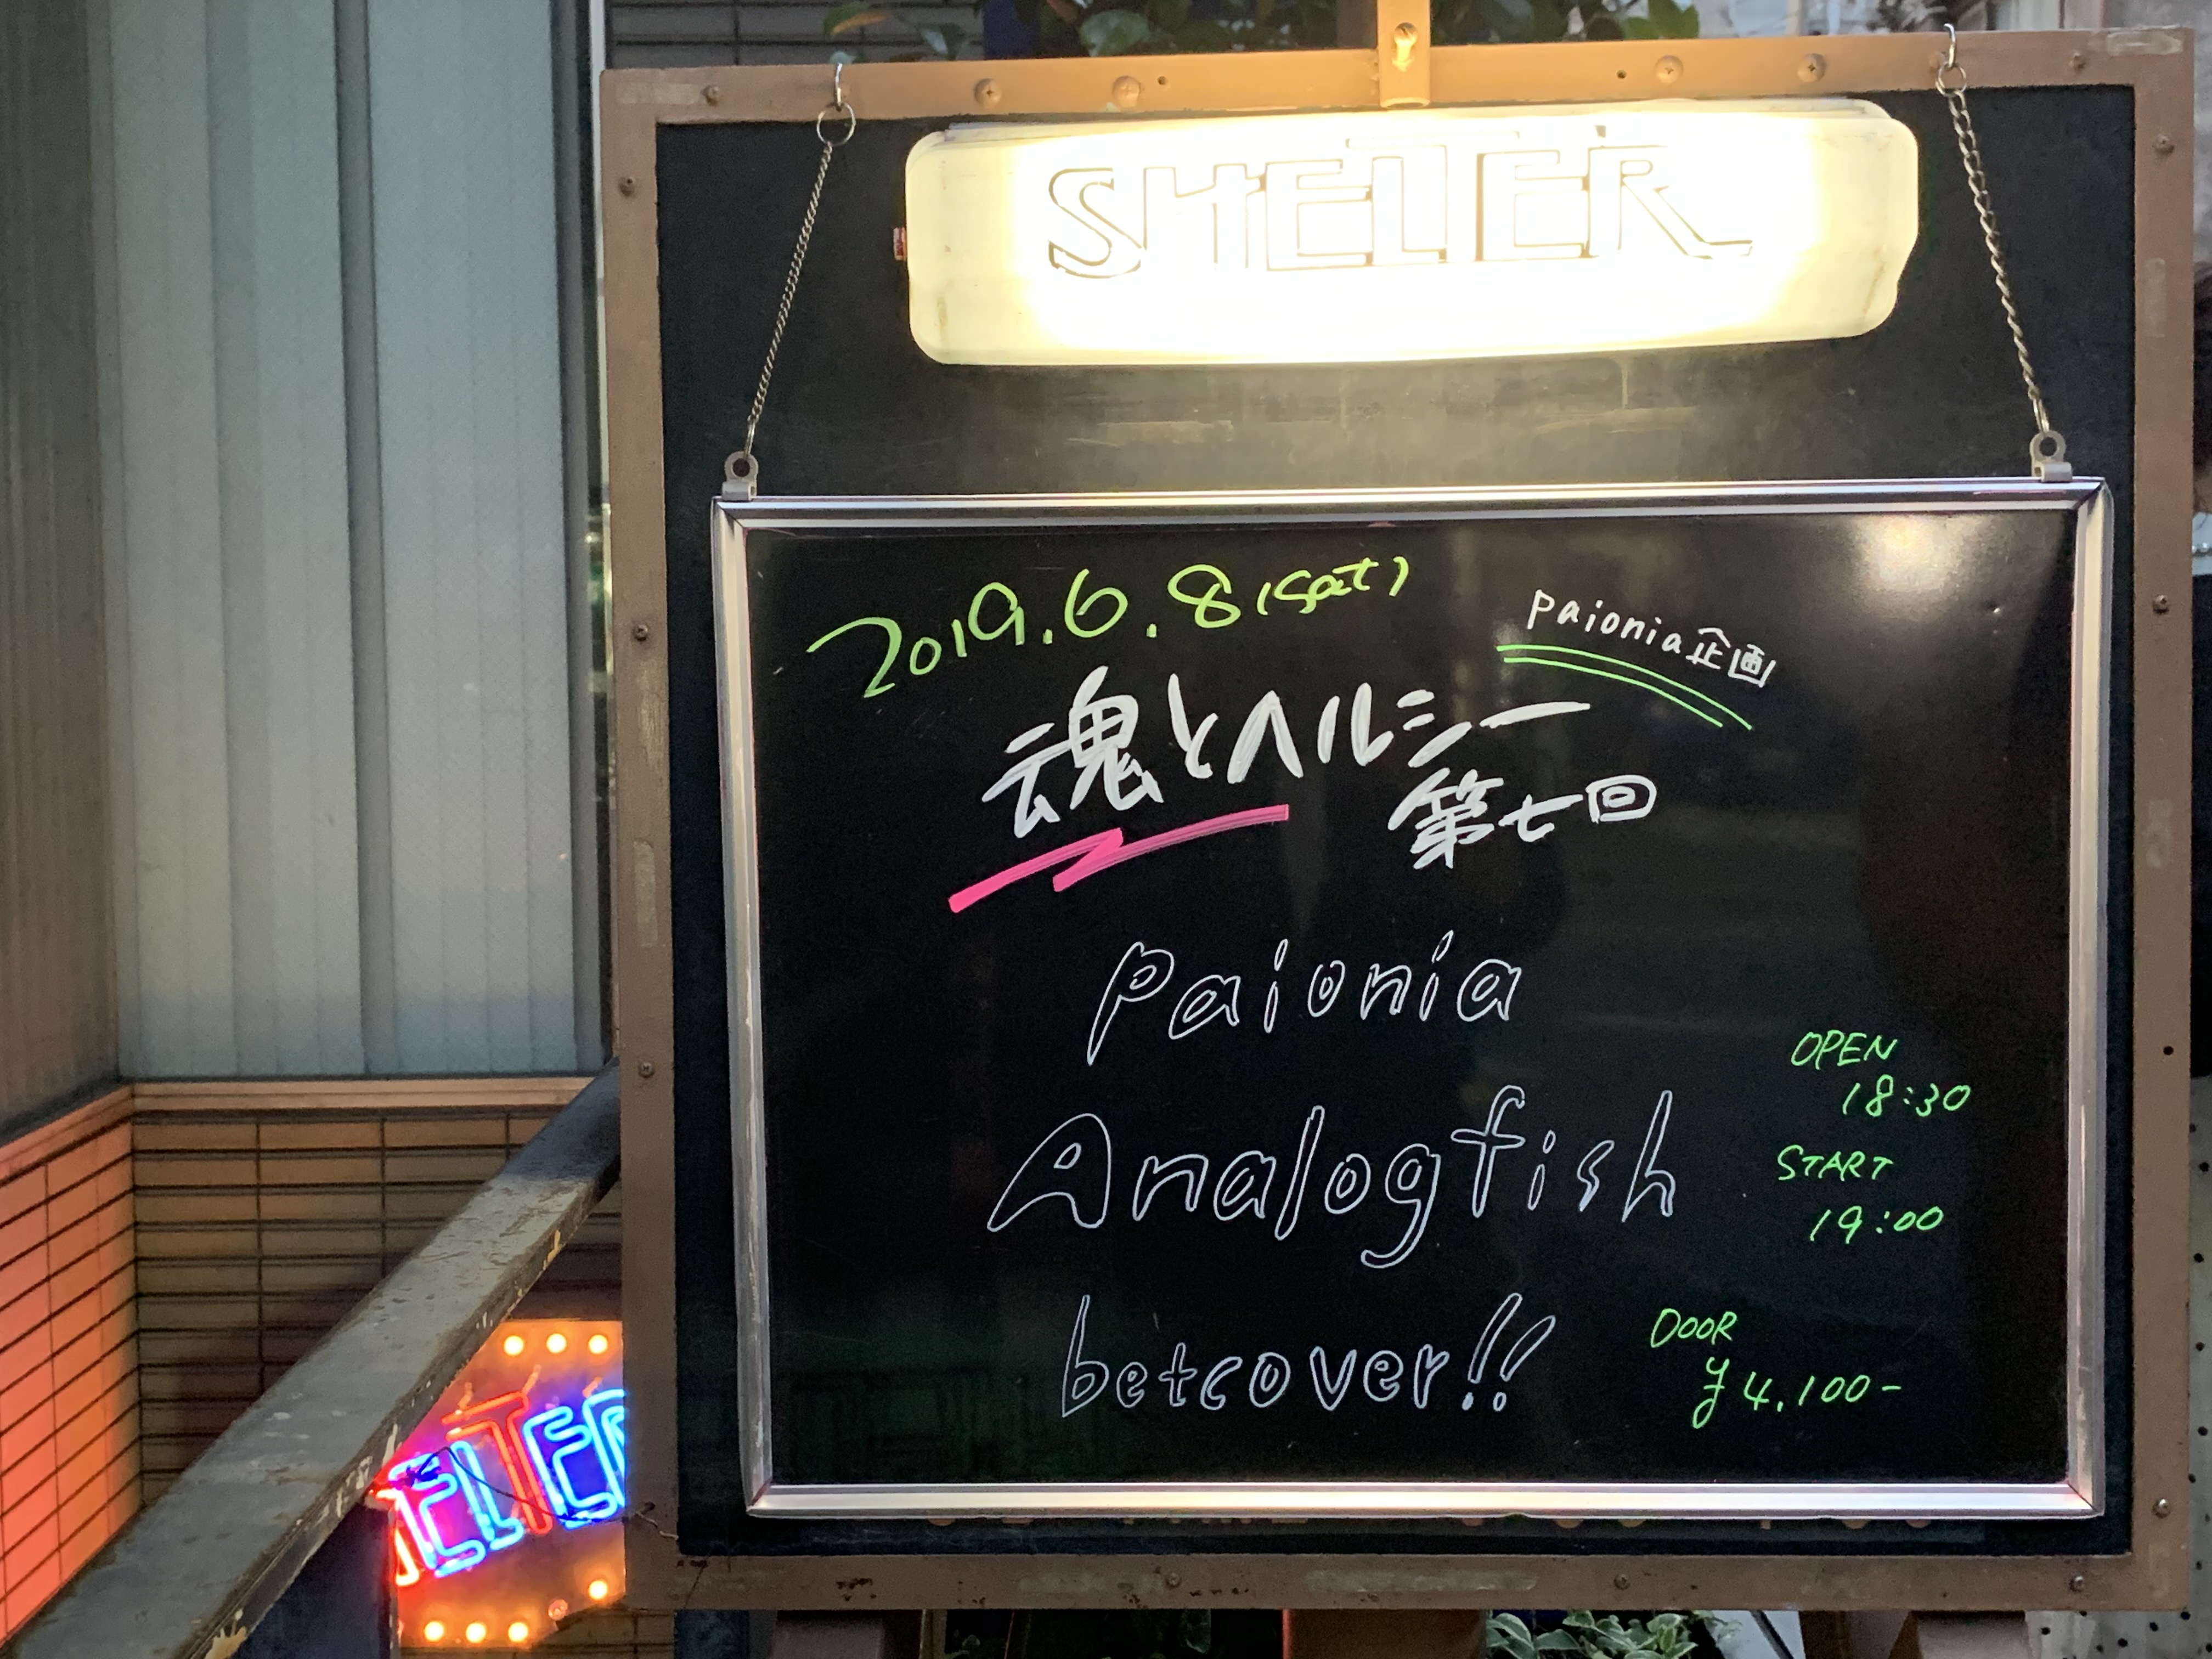 SHELTER
2019.6.8(sat)
paionia企画
魂とヘルシー
第七回
paionia
Analogfish
betcover!!
OPEN
18:30
START
19:00
DOOR
¥4.100-
ELTER